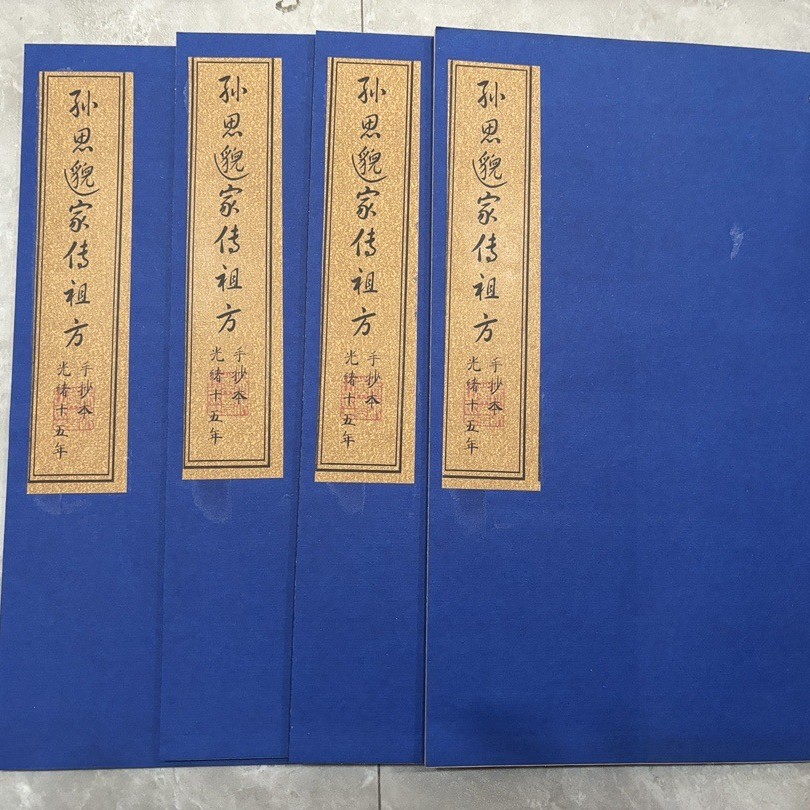 孙思邈家傳祖方
手抄本
光緒十五年
孙思邈家傳祖方
手抄本
光緒十五年
孙思邈家傳祖方
手抄本
光緒十五年
孙思邈家傳祖方
手抄本
光緒十五年